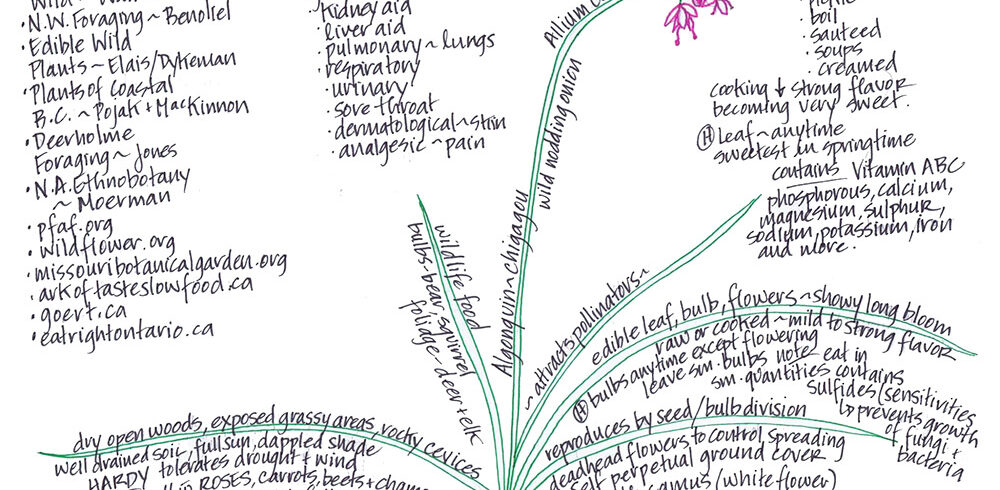 N.W. Foraging ~ Benoliel
Edible Wild
Plants ~ Elais/Dykeman
Plants of Coastal
B.C. ~ Pojak + MacKinnon
Deerholme
Foraging ~ Jones
N.A. Ethnobotany
~ Moerman
pfaf.org
wildflower.org
missouribotanicalgarden.org
arkoftasteslowfood.ca
goert.ca
eatrightontario.ca
kidney aid
liver aid
pulmonary ~ lungs
respiratory
urinary
sore throat
dermatological ~ skin
analgesic ~ pain
Allium
wild nodding onion
Algonquin ~ chigagou
boil
sauteed
soups
creamed
cooking ↓ strong flavor
becoming very sweet.
Ⓗ Leaf ~ anytime
sweetest in springtime
contains Vitamin ABC
phosphorous, calcium,
magnesium, sulphur,
sodium, potassium, iron
and more.
wildlife food
bulbs-bear, squirrel
foliage-deer + elk
~ attracts pollinators ~
edible leaf, bulb, flowers ~ showy long bloom
raw or cooked ~ mild to strong flavor
Ⓗ bulbs anytime except flowering
leave sm. bulbs note eat in
sm. quantities contains
sulfides (sensitivities
↳ prevents growth
of fungi +
bacteria
reproduces by seed/bulb division
deadhead flowers to control spreading
self perpetual ground cover
camus (white flower)
dry open woods, exposed grassy areas, rocky cevices
well drained soil, full sun, dappled shade
HARDY tolerates drought + wind
ROSES, carrots, beets +